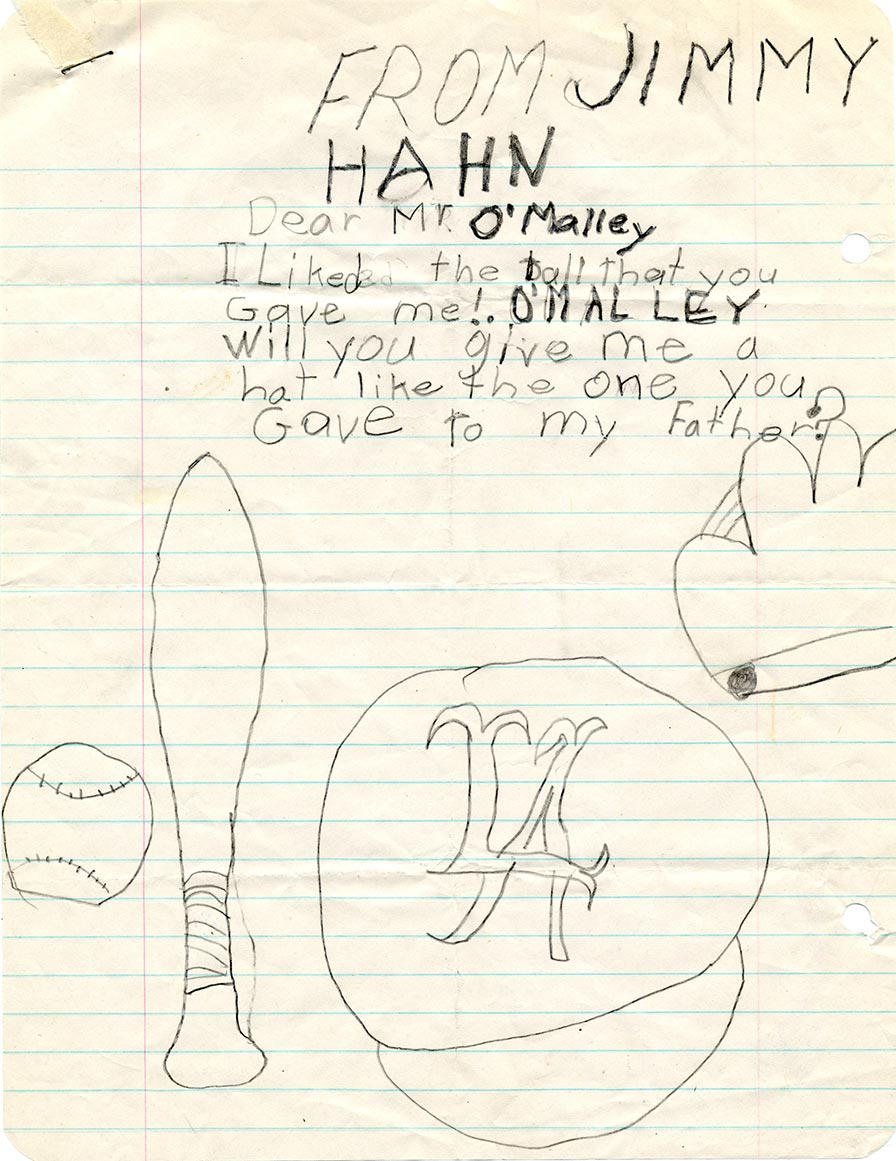 FROM JIMMY
HAHN
Dear Mr. O'Malley
I Liked the ball that you
Gave me!. O'MALLEY
Will you give me a
hat like the one you
Gave to my Father?
LA